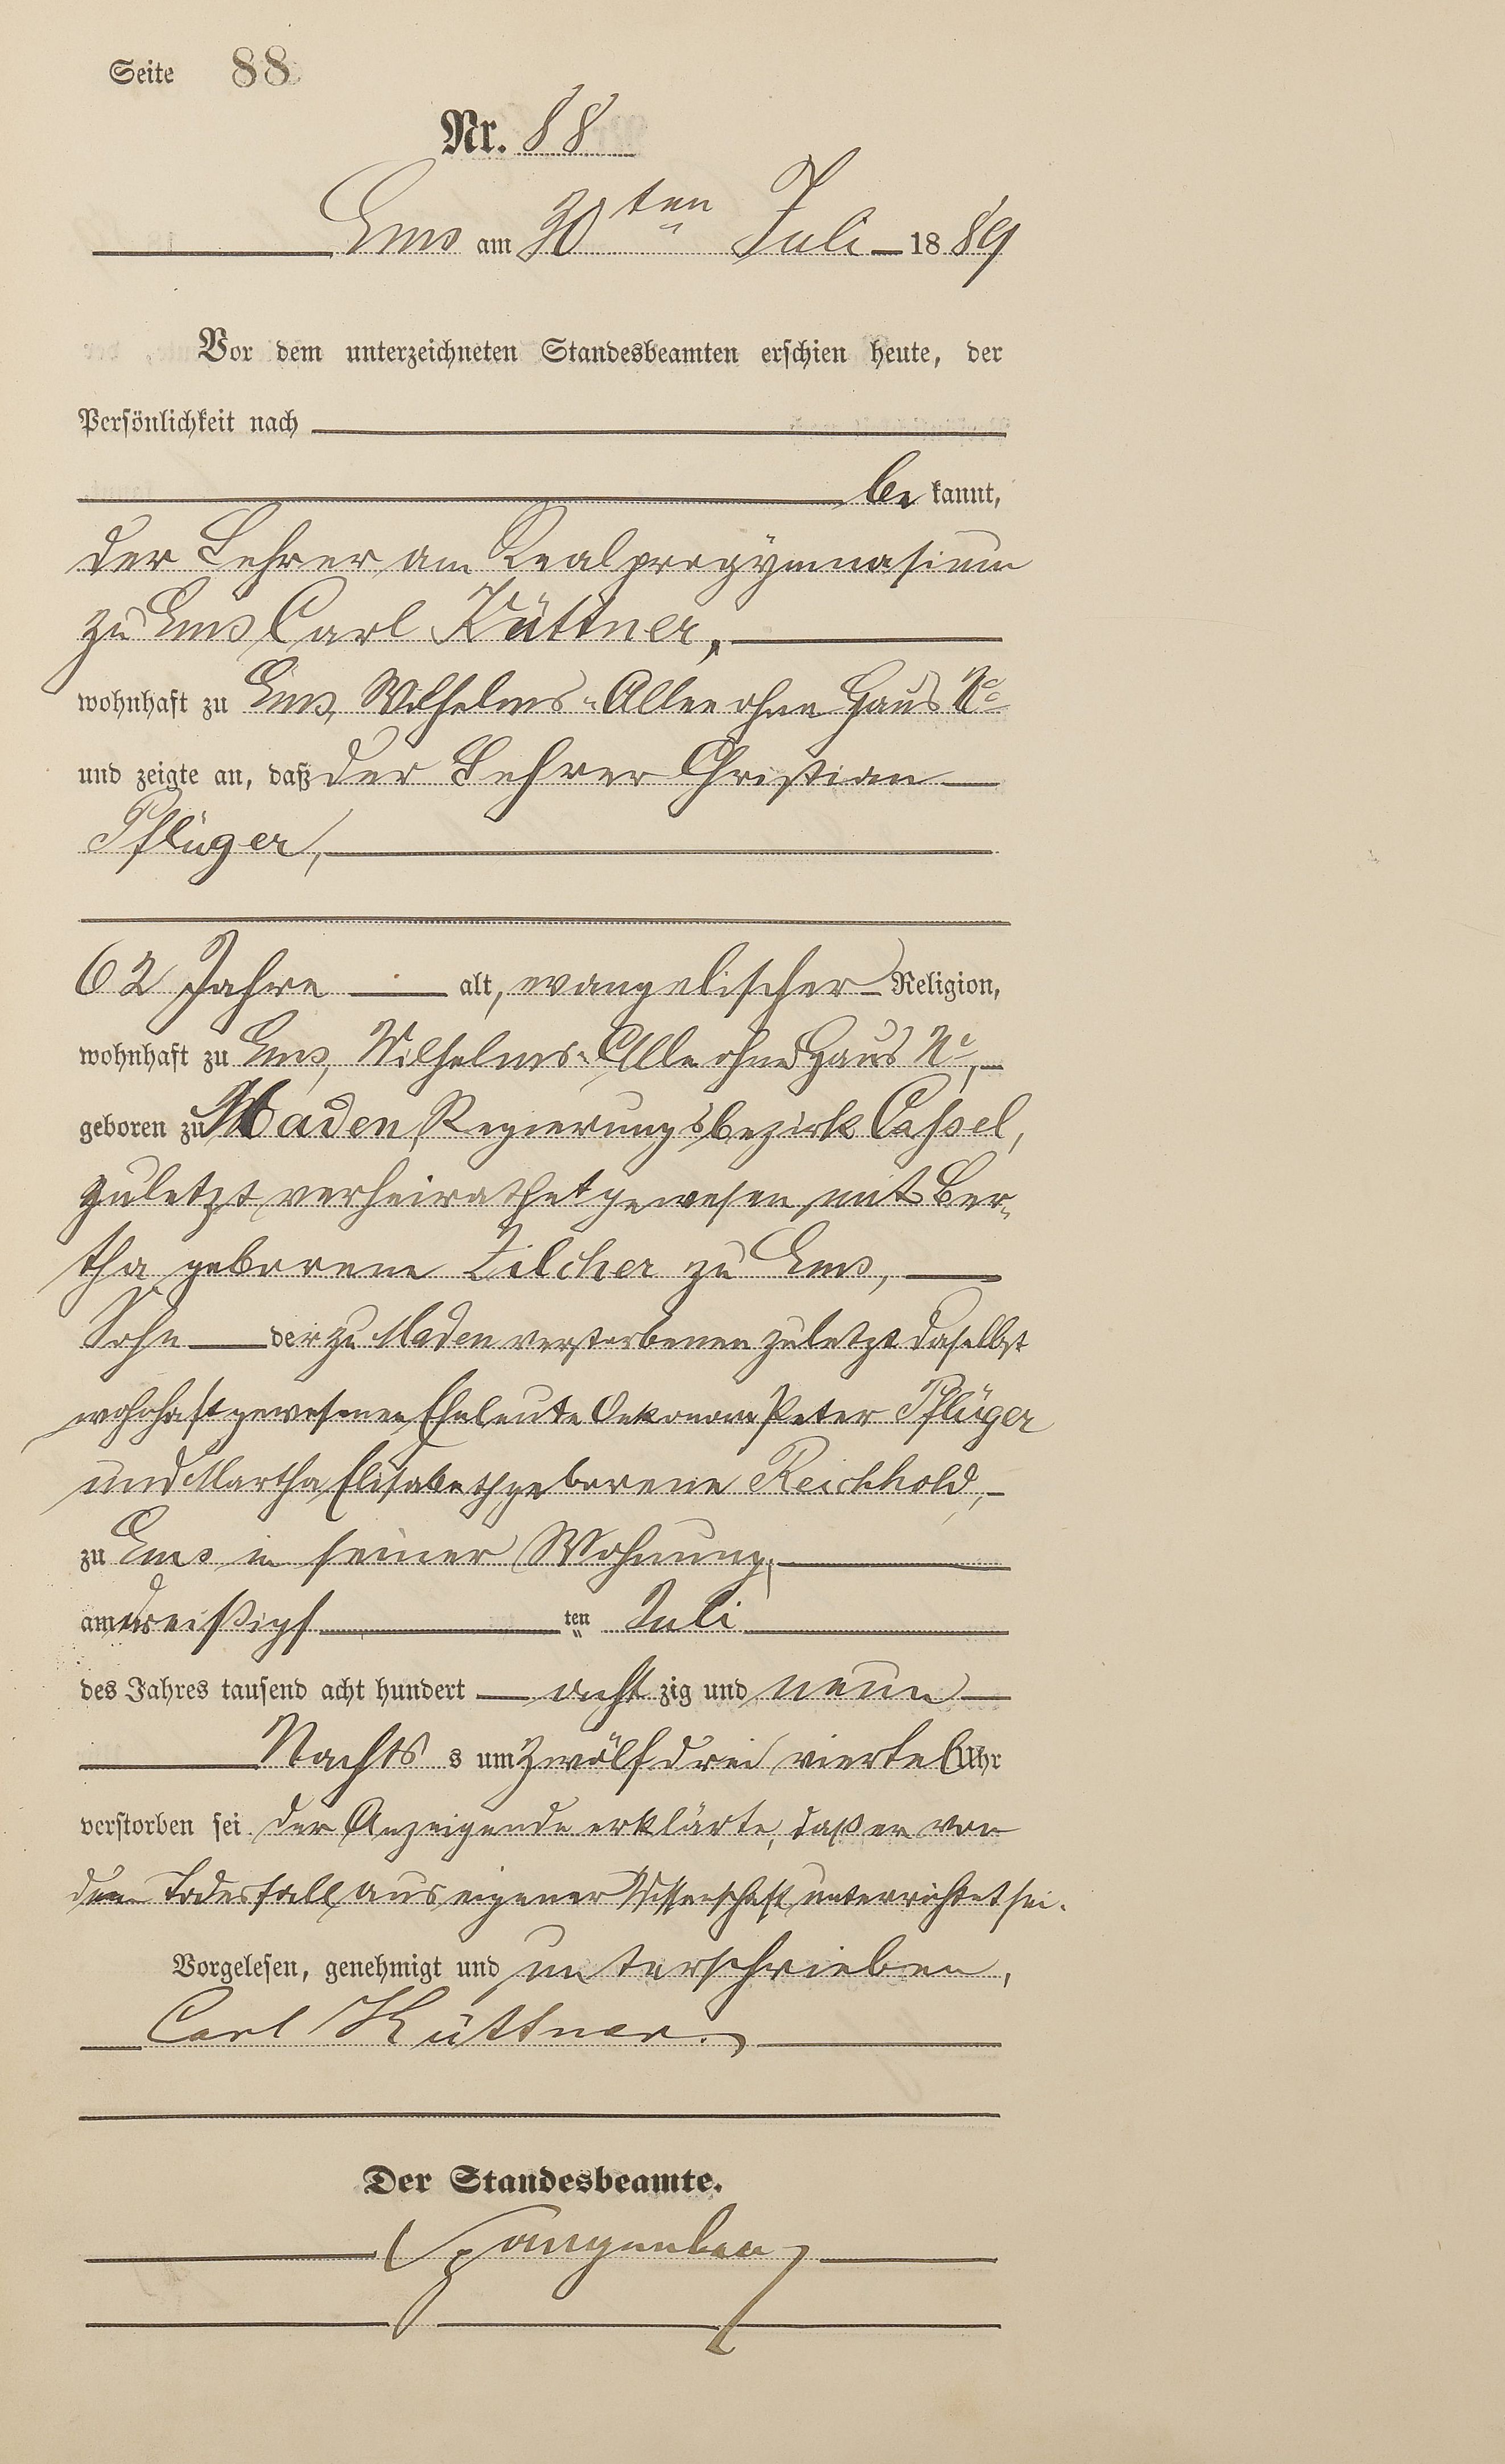 Seite 88
Nr. 88
Ems am 30ten Juli 1889
Vor dem unterzeichneten Standesbeamten erschien heute, der
Persönlichkeit nach
be kannt,
der Lehrer am Realprogymnasium
zu Ems Carl Küttner,
wohnhaft zu Ems, Wilhelms-Allee ohne Haus No
und zeigte an, daß der Lehrer Christian
Pflüger,
62 Jahre alt, evangelischer Religion,
wohnhaft zu Ems, Wilhelms-Alle ohne Haus No,
geboren zu Maden, Regierungsbezirk Cassel,
zuletzt verheirathet gewesen mit Ber-
tha geborene Zilcher zu Ems,
Sohn der zu Maden verstorbenen zuletzt daselbst
wohnhaft gewesenen Eheleute Oekonom Peter Pflüger
und Martha Elisabeth geborene Reichhold,
zu Ems in seiner Wohnung,
am dreißigs ten Juli
des Jahres tausend acht hundert acht zig und neun
Nachts s um zwölf drei viertel Uhr
verstorben sei. Der Anzeigende erklärte, daß er von
dem Todesfall aus eigener Wissenschaft unterrichtet sei.
Vorgelesen, genehmigt und unterschrieben,
Carl Küttner.
Der Standesbeamte.
Spangenberg